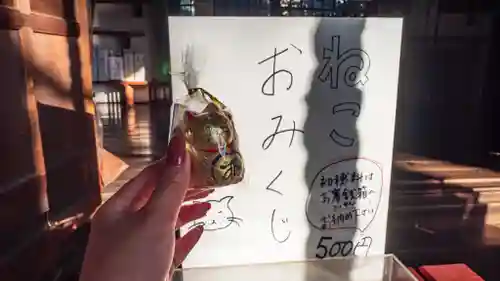 ねこ
おみくじ
初穂料は
お賽銭箱へ
お納め下さい
500円